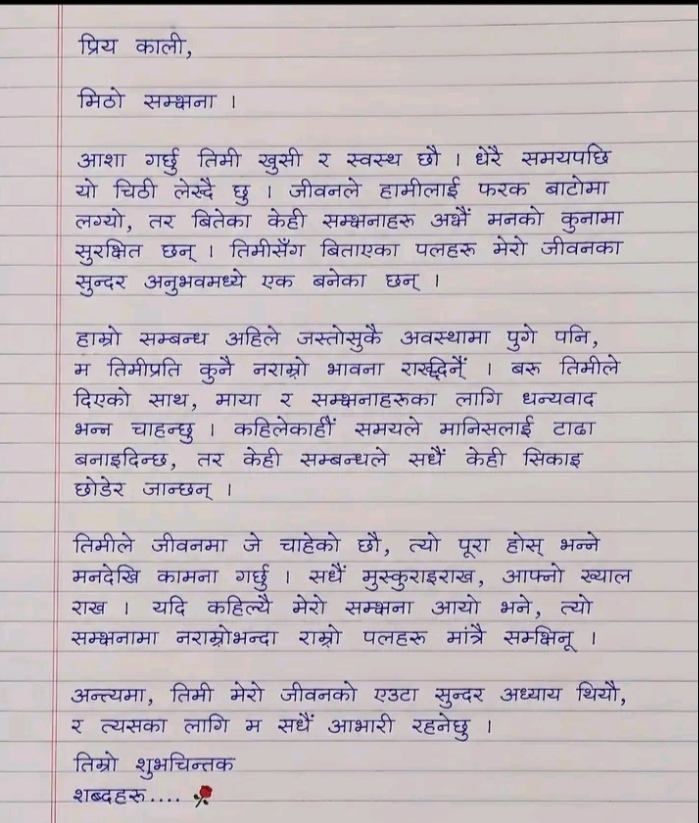 प्रिय काली,
मिठो सम्झना ।
आशा गर्छु तिमी खुसी र स्वस्थ छौ । धेरै समयपछि
यो चिठी लेख्दै छु । जीवनले हामीलाई फरक बाटोमा
लग्यो, तर बितेका केही सम्झनाहरू अझैं मनको कुनामा
सुरक्षित छन् । तिमीसँग बिताएका पलहरू मेरो जीवनका
सुन्दर अनुभवमध्ये एक बनेका छन् ।
हाम्रो सम्बन्ध अहिले जस्तोसुकै अवस्थामा पुगे पनि,
म तिमीप्रति कुनै नराम्रो भावना राख्दिनँ । बरू तिमीले
दिएको साथ, माया र सम्झनाहरूका लागि धन्यवाद
भन्न चाहन्छु । कहिलेकाहीँ समयले मानिसलाई टाढा
बनाइदिन्छ, तर केही सम्बन्धले सधैं केही सिकाइ
छोडेर जान्छन् ।
तिमीले जीवनमा जे चाहेको छौ, त्यो पूरा होस् भन्ने
मनदेखि कामना गर्छु । सधैं मुस्कुराइराख, आफ्नो ख्याल
राख । यदि कहिल्यै मेरो सम्झना आयो भने, त्यो
सम्झनामा नराम्रोभन्दा राम्रो पलहरू मात्रै सम्झिनू ।
अन्त्यमा, तिमी मेरो जीवनको एउटा सुन्दर अध्याय थियौ,
र त्यसका लागि म सधैं आभारी रहनेछु ।
तिम्रो शुभचिन्तक
शब्दहरू.... 🌹